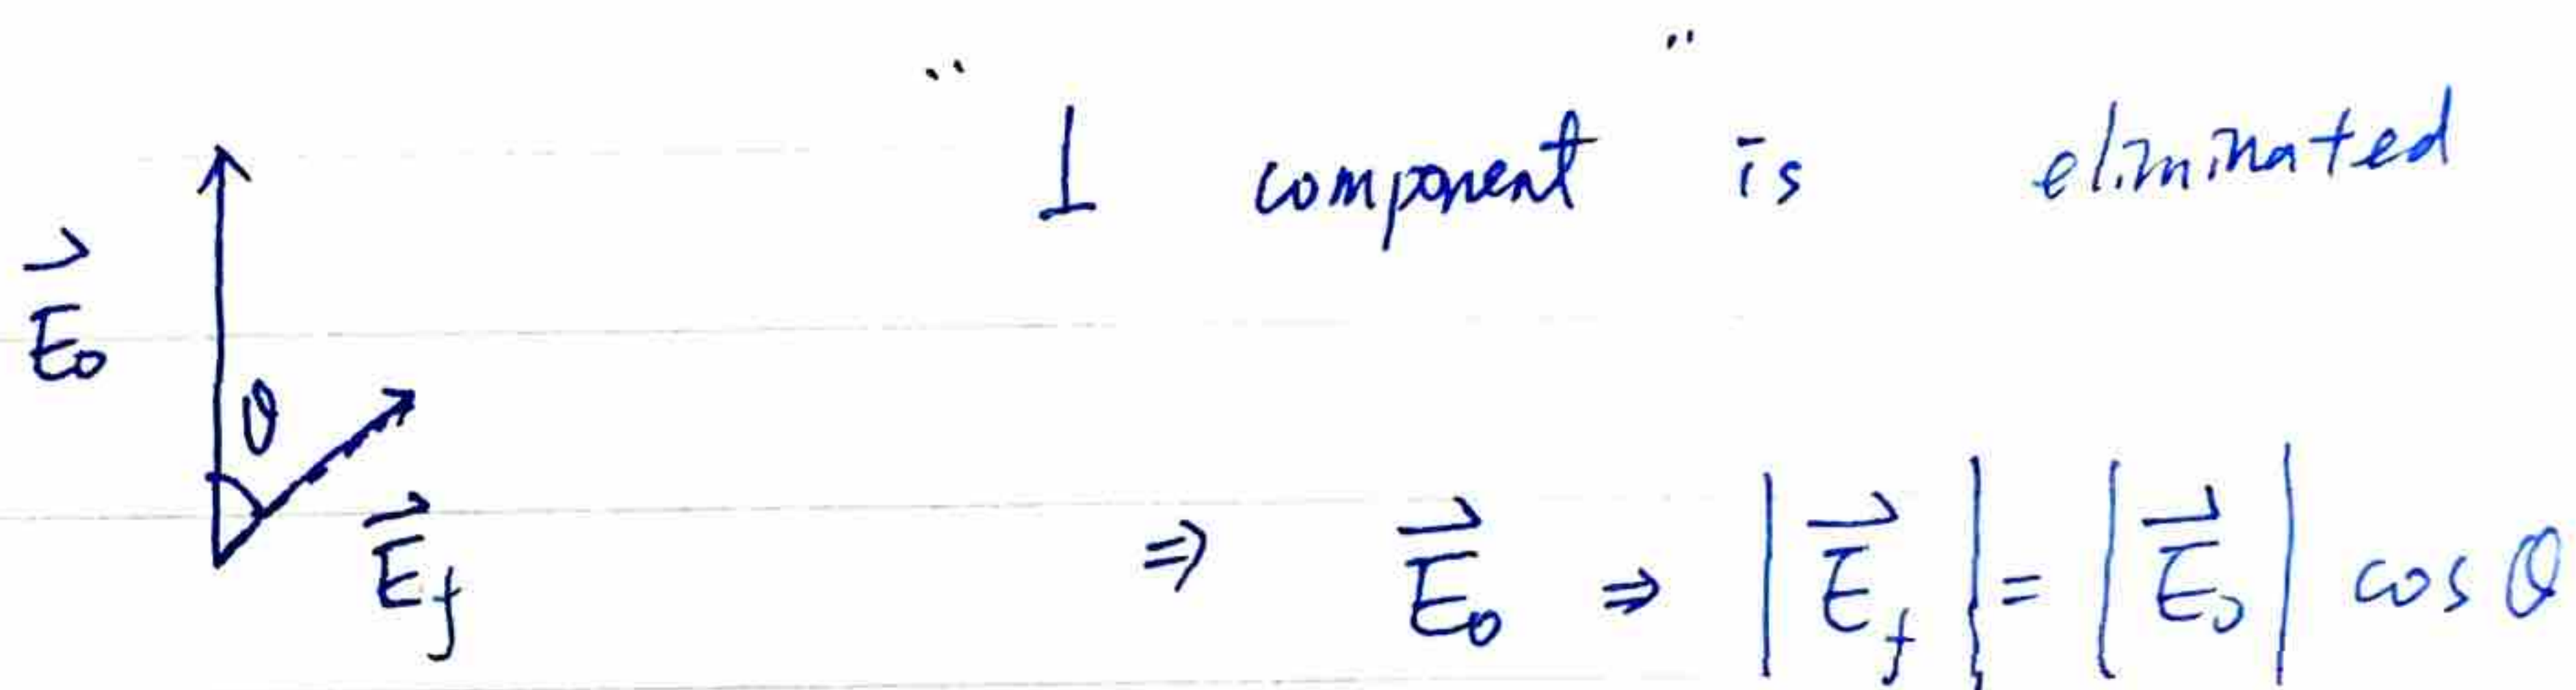 "⊥ component" is eliminated
E⃗₀
θ
E⃗f
⇒ E⃗₀ ⇒ |E⃗f| = |E⃗₀| cos θ